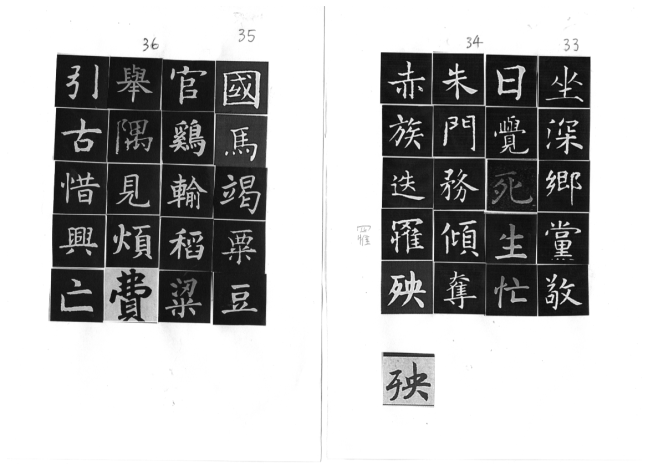 33
坐深鄉黨敬
日覺死生忙
34
朱門務傾奪
赤族迭罹殃
殃
35
國馬竭粟豆
官鷄輸稻粱
36
舉隅見煩費
引古惜興亡